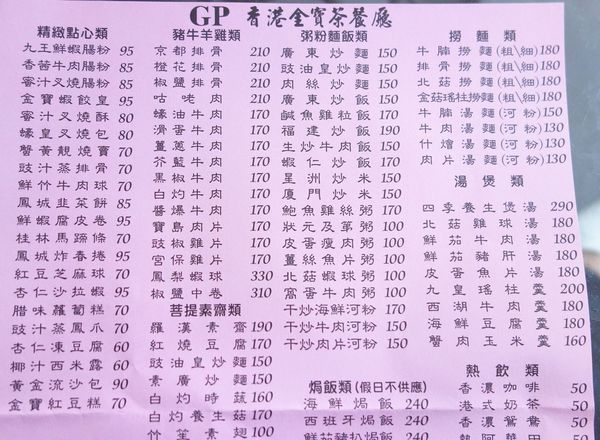 GP 香港金寶茶餐廳
精緻點心類
九王鮮蝦腸粉 95
香茜牛肉腸粉 85
蜜汁叉燒腸粉 85
金寶蝦餃皇 95
蜜汁叉燒酥 80
蠔皇叉燒包 80
蟹黃靚燒賣 70
豉汁蒸排骨 70
鮮竹牛肉球 70
鳳城韭菜餅 85
鮮蝦腐皮卷 95
桂林馬蹄條 70
鳳城炸春捲 95
紅豆芝麻球 70
杏仁沙拉蝦 95
腊味蘿蔔糕 70
豉汁蒸鳳爪 70
杏仁凍豆腐 60
椰汁西米露 60
黃金流沙包 90
金寶紅豆糕 70
豬牛羊雞類
京都排骨 210
橙花排骨 210
椒鹽排骨 210
咕咾肉 210
蠔油牛肉 170
滑蛋牛肉 170
薑蔥牛肉 170
芥藍牛肉 170
黑椒牛肉 170
白灼牛肉 170
醬爆牛肉 170
寶島肉片 170
豉椒雞片 170
宮保雞片 170
鳳梨蝦球 330
椒鹽中卷 310
菩提素齋類
羅漢素齋 190
紅燒豆腐 170
豉油皇炒麵 150
素廣炒麵 150
白灼時蔬 160
白灼養生菇 170
竹笙素翅 100
粥粉麵飯類
廣東炒麵 150
豉油皇炒麵 150
肉絲炒麵 150
廣東炒飯 150
鹹魚雞粒飯 170
福建炒飯 190
生炒牛肉飯 150
蝦仁炒飯 170
星洲炒米 150
廈門炒米 150
鮑魚雞絲粥 170
狀元及第粥 100
皮蛋瘦肉粥 100
薑絲魚片粥 100
北菇蝦球粥 100
窩蛋牛肉粥 100
干炒海鮮河粉 170
干炒牛肉河粉 150
干炒肉片河粉 150
焗飯類(假日不供應)
海鮮焗飯 240
西班牙焗飯 240
鮮茄豬扒焗飯 240
撈麵類
牛腩撈麵(粗\細) 180
排骨撈麵(粗\細) 180
北菇撈麵(粗\細) 180
金菇瑤柱撈麵(粗\細) 180
牛腩湯麵(河粉) 150
牛肉湯麵(河粉) 130
什燴湯麵(河粉) 130
肉片湯麵(河粉) 130
湯煲類
四季養生煲湯 290
北菇雞球湯 180
鮮茄牛肉湯 180
鮮茄豬肝湯 180
皮蛋魚片湯 180
九皇瑤柱羹 200
西湖牛肉羹 180
海鮮豆腐羹 180
蟹肉玉米羹 160
熱飲類
香濃咖啡 50
港式奶茶 50
香濃鴛鴦 50
50